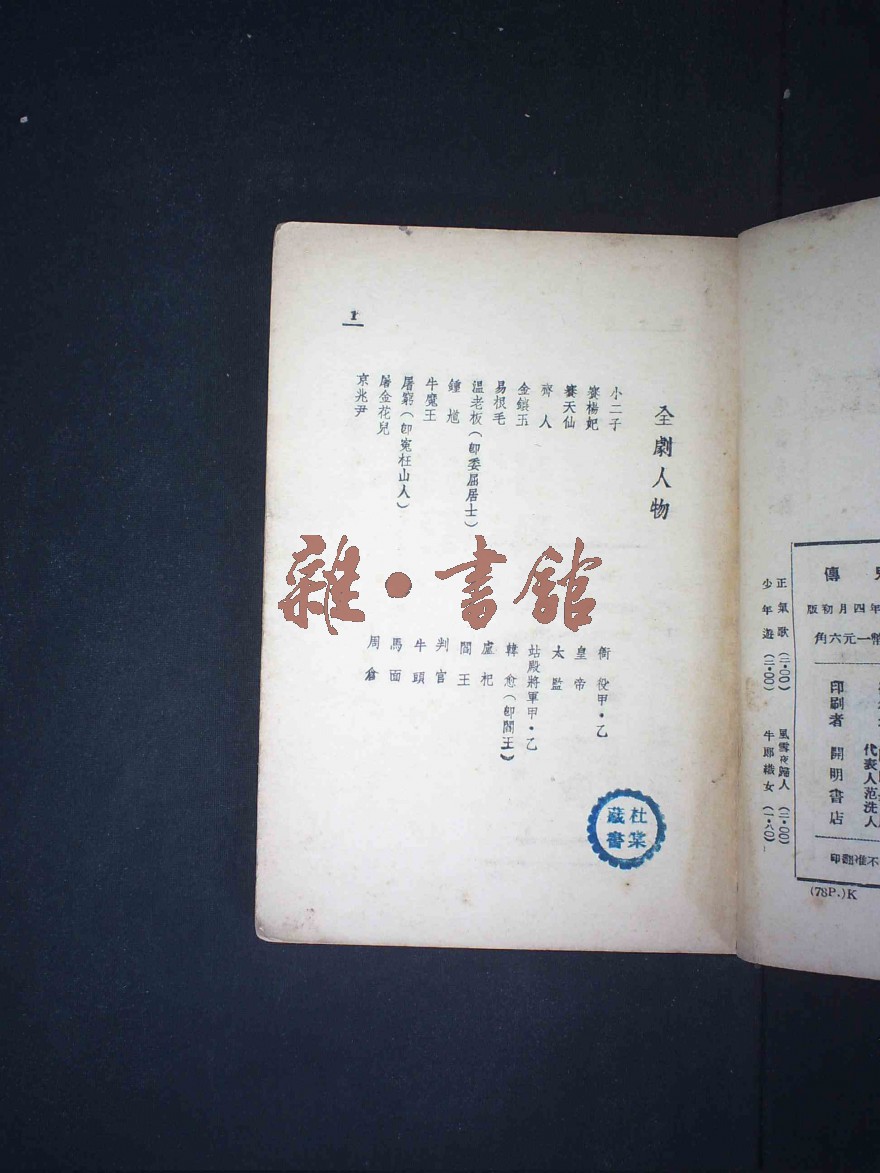 全劇人物
小二子
賽楊妃
賽天仙
齊人
金鑲玉
易根毛
溫老板(卽委屈居士)
鍾馗
牛魔王
屠窮(卽冤枉山人)
屠金花兒
京兆尹
衙役甲・乙
皇帝
太監
站殿將軍甲・乙
韓愈(卽閻王)
盧杞
閻王
判官
牛頭
馬面
周倉
1
雜・書館
杜棠
藏書
傳
年四月初版
幣一元六角
印刷者
開明書店
代表人范洗人
不准翻印
正氣歌(二・〇〇)
風雪夜歸人(二・〇〇)
少年遊(二・〇〇)
牛郎織女(一・八〇)
(78P.)K